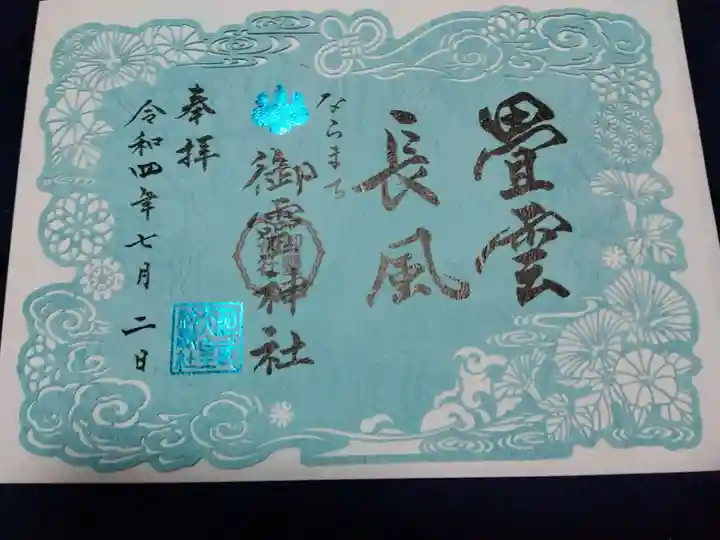 畳雲
長風
ならまち
御霊神社
奉拝
令和四年七月二日